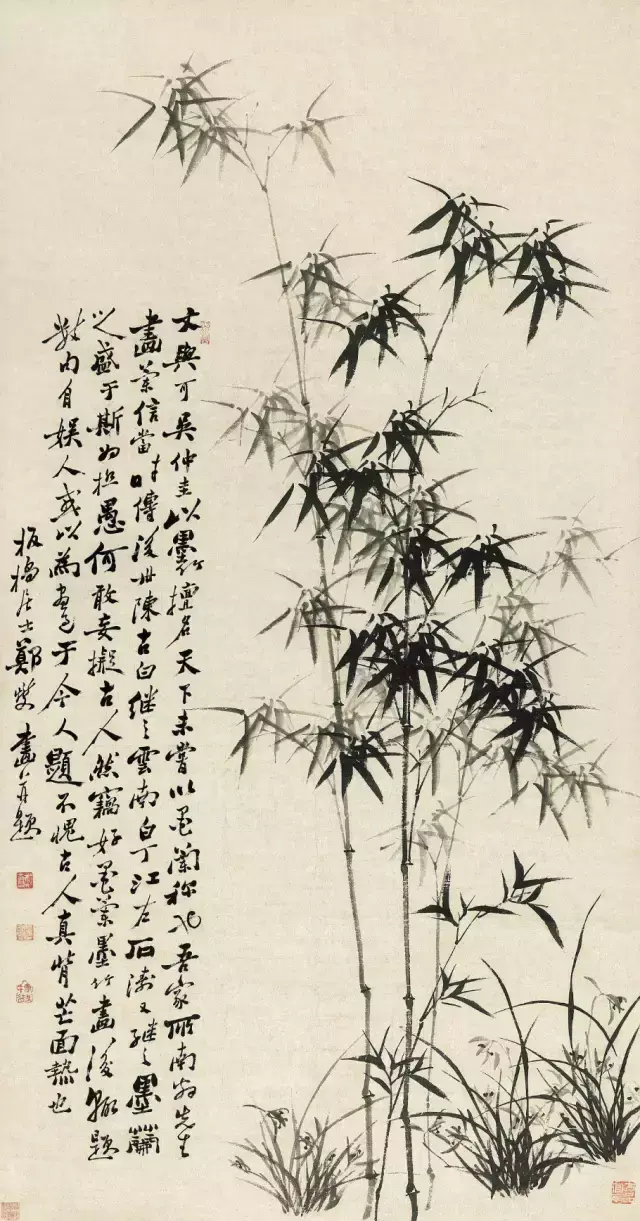 文與可吳仲圭以墨竹擅名天下未嘗以墨蘭称也吾家所南翁先生
畫蘭信當時傳後世陳古白继之雲南白丁江右石濤又继之墨蘭
之盛于斯為极愚何敢妄擬古人然竊好墨蘭墨竹畫後輒題
數句自娱人或以為畫過于今人題不愧古人真背芒面熱也
板橋居士鄭燮畫并題